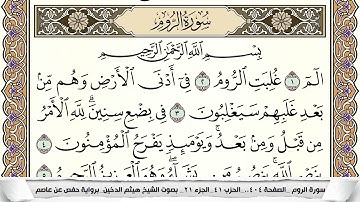 سُورَةُ الرُّومِ
بِسْمِ اللَّهِ الرَّحْمَٰنِ الرَّحِيمِ
الٓمٓ ١ غُلِبَتِ الرُّومُ ٢ فِىٓ أَدْنَى الْأَرْضِ وَهُم مِّنۢ
بَعْدِ غَلَبِهِمْ سَيَغْلِبُونَ ٣ فِى بِضْعِ سِنِينَ ۗ لِلَّهِ الْأَمْرُ
مِن قَبْلُ وَمِنۢ بَعْدُ ۚ وَيَوْمَئِذٍ يَفْرَحُ الْمُؤْمِنُونَ ٤
سورة الروم _الصفحة ٤٠٤.. الحزب ٤١_الجزء ٢١_ بصوت الشيخ هيثم الدخين. برواية حفص عن عاصم